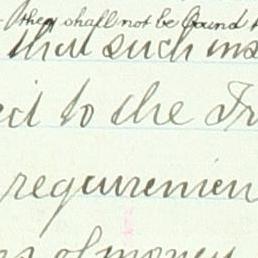 they shall not be bound
that such ins
ed to the Tr
requiremen
of money